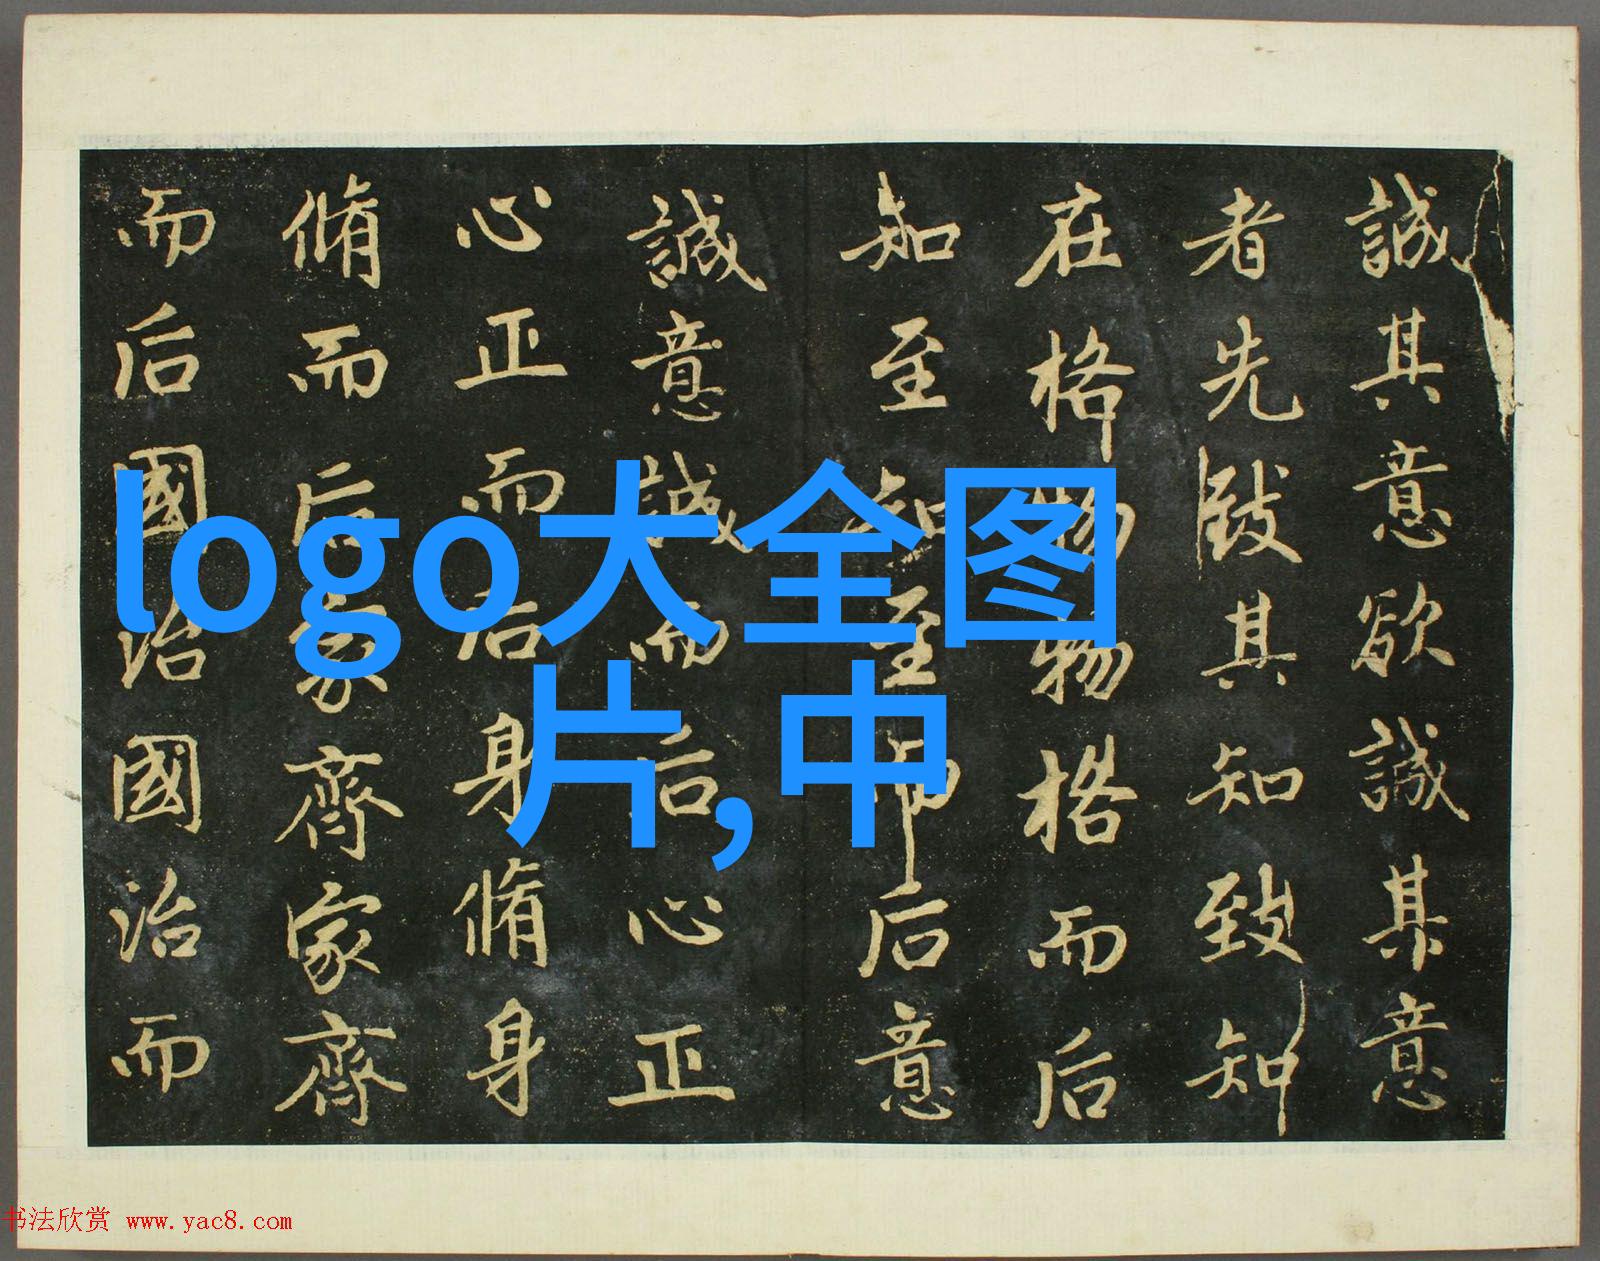 誠其意欲誠其意
者先致其知致知
在格物物格而后
知至知至而后意
誠意誠而后心正
心正而后身脩身
脩而后家齊家齊
而后國治國治而
logo大全图
片,中
书法欣赏 www.yac8.com